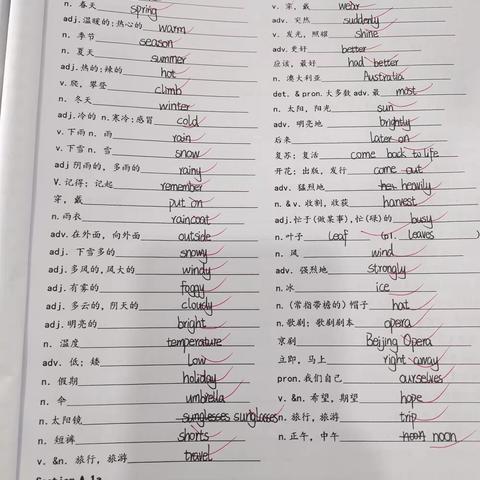 n. 春天 spring
adj.温暖的;热心的 warm
n. 季节 season
n. 夏天 summer
adj.热的;辣的 hot
v.爬, 攀登 climb
n. 冬天 winter
adj.冷的 n.寒冷;感冒 cold
v.下雨 n. 雨 rain
v.下雪 n. 雪 snow
adj 阴雨的, 多雨的 rainy
V.记得; 记起 remember
穿, 戴 put on
n.雨衣 raincoat
adv.在外面, 向外面 outside
adj. 下雪多的 snowy
adj.多风的,风大的 windy
adj.有雾的 foggy
adj.多云的, 阴天的 cloudy
adj.明亮的 bright
n. 温度 temperature
adv. 低; 矮 Low
n. 假期 holiday
n. 伞 umbrella
n.太阳镜 sunglesses sunglasses
n. 短裤 shorts
v. &n. 旅行, 旅游 travel
Section A 1a
v. 穿, 戴 wear
adv. 突然 suddenly
v. 发光, 照耀 shine
adv.更好 better
应该, 最好 had better
n. 澳大利亚 Australia
det. & pron.大多数 adv.最 most
n. 太阳, 阳光 sun
adv. 明亮地 brightly
后来 later on
复苏; 复活 come back to life
开花; 出版, 发行 come out
adv. 猛烈地 heavily
n. & v. 收割, 收获 harvest
adj.忙于(做某事),忙(碌)的 busy
n.叶子 leaf (pl. leaves)
n. 风 wind
adv. 强烈地 strongly
n.冰 ice
n.(常指带檐的)帽子 hat
n.歌剧; 歌剧剧本 opera
京剧 Beijing Opera
立即, 马上 right away
pron.我们自己 ourselves
v. &n.希望, 期望 hope
n.旅行, 旅游 trip
n.正午, 中午 noon noon